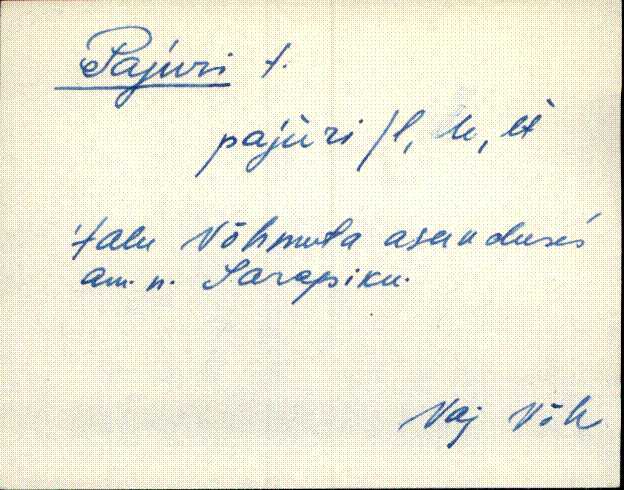 Pajuri t.
pajuri /l, le, lt
talu Võhmuta asunduses
am. n. Sarapiku.
Vaj Võh